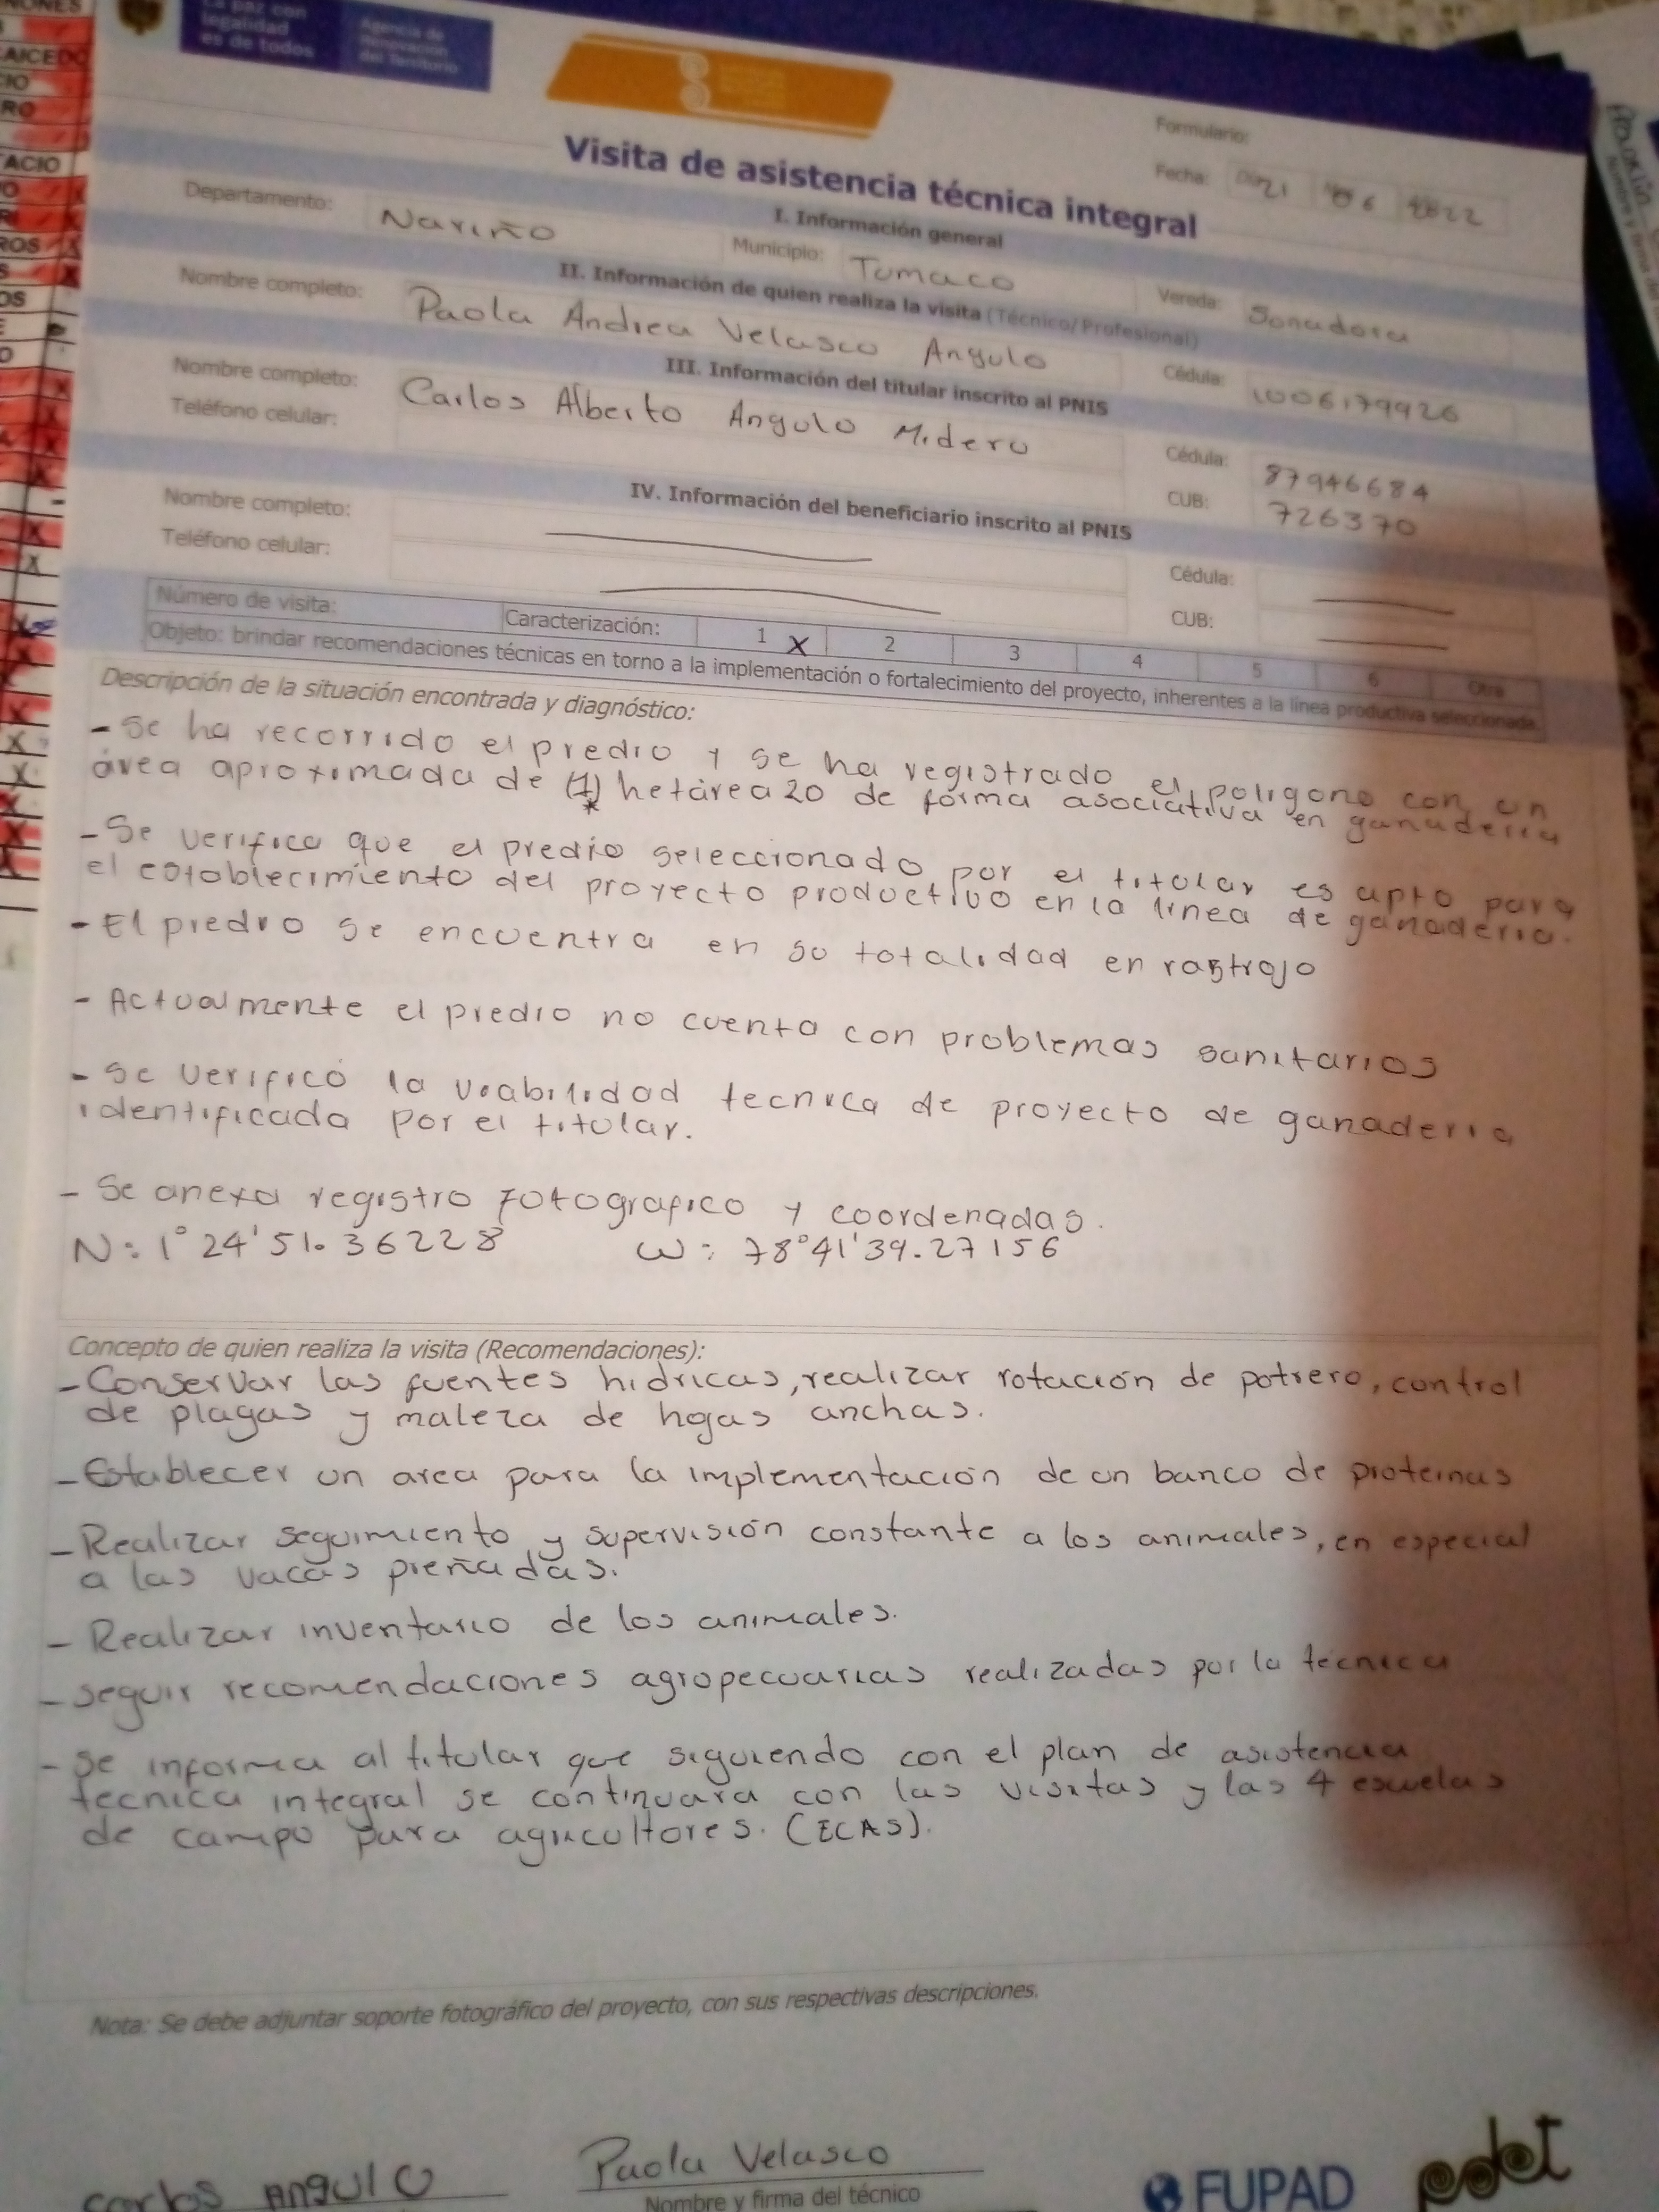 La paz con
legalidad
es de todos
Agencia de
Renovación
del Territorio
Formulario:
Visita de asistencia técnica integral
Fecha: 21 06 2022
I. Información general
Departamento: Nariño Municipio: Tumaco Vereda: Sonadora
II. Información de quien realiza la visita (Técnico/Profesional)
Nombre completo: Paola Andrea Velasco Angulo Cédula: 1006179926
III. Información del titular inscrito al PNIS
Nombre completo: Carlos Alberto Angulo Midero Cédula: 87946684
Teléfono celular: CUB: 726370
IV. Información del beneficiario inscrito al PNIS
Nombre completo: Cédula:
Teléfono celular: CUB:
Número de visita: Caracterización: 1 X 2 3 4 5 6 Otra
Objeto: brindar recomendaciones técnicas en torno a la implementación o fortalecimiento del proyecto, inherentes a la línea productiva seleccionada
Descripción de la situación encontrada y diagnóstico:
- Se ha recorrido el predio y se ha registrado el poligono con un
área aproximada de (1) hetárea 20 de forma asociativa en ganaderia
*
- Se verifico que el predio seleccionado por el titular es apto para
el establecimiento del proyecto productivo en la linea de ganaderia.
- El predio se encuentra en su totalidad en rastrojo
- Actualmente el predio no cuenta con problemas sanitarios
- Se verificó la viabilidad tecnica de proyecto de ganaderia
identificada por el titular.
- Se anexa registro fotografico y coordenadas.
N: 1°24'51.36228 W: 78°41'39.27156
Concepto de quien realiza la visita (Recomendaciones):
- Conservar las fuentes hidricas, realizar rotación de potrero, control
de plagas y maleza de hojas anchas.
- Establecer un area para la implementación de un banco de proteinas
- Realizar seguimiento y supervisión constante a los animales, en especial
a las vacas preñadas.
- Realizar inventario de los animales.
- seguir recomendaciones agropecuarias realizadas por la técnica
- se informa al titular que siguiendo con el plan de asistencia
tecnica integral se continuara con las visitas y las 4 escuelas
de campo para agricultores. (ECAS).
Nota: Se debe adjuntar soporte fotográfico del proyecto, con sus respectivas descripciones.
Carlos Angulo
Paola Velasco
Nombre y firma del técnico
FUPAD
pdet